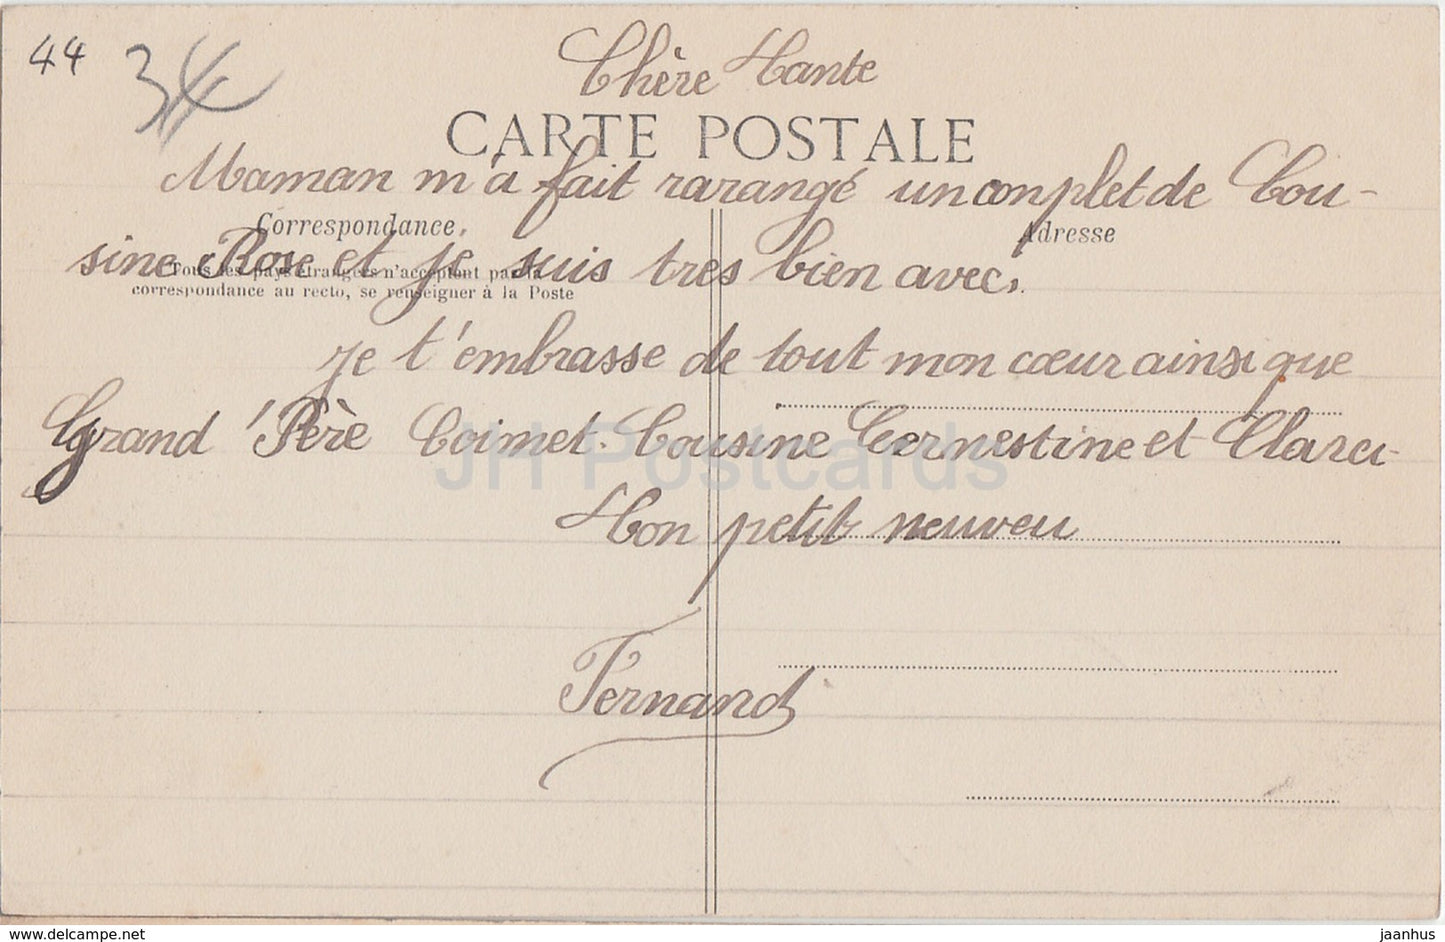 44 3€
Chère Tante
CARTE POSTALE
Maman m'a fait rarangé un complet de Cou-
Correspondance, Adresse
sine Rose et je suis tres bien avec,
Tous les pays étrangers n'acceptent pas la
correspondance au recto, se renseigner à la Poste
je t'embrasse de tout mon cœur ainsi que
Grand 'Père Coimet. Cousine Cernestine et Clara
JH Postcards
Ton petit neuveu
Fernand
www.delcampe.net jaanhus